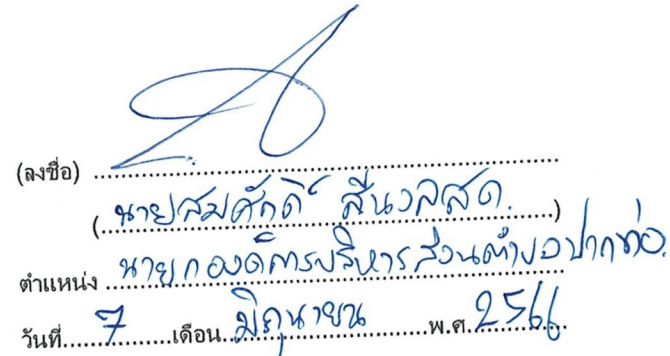 (ลงชื่อ) ........................................
(นายสมศักดิ์ สีนวลสด.)
ตำแหน่ง นายกองค์การบริหารส่วนตำบลปากท่อ.
วันที่ 7 เดือน มิถุนายน พ.ศ. 2566